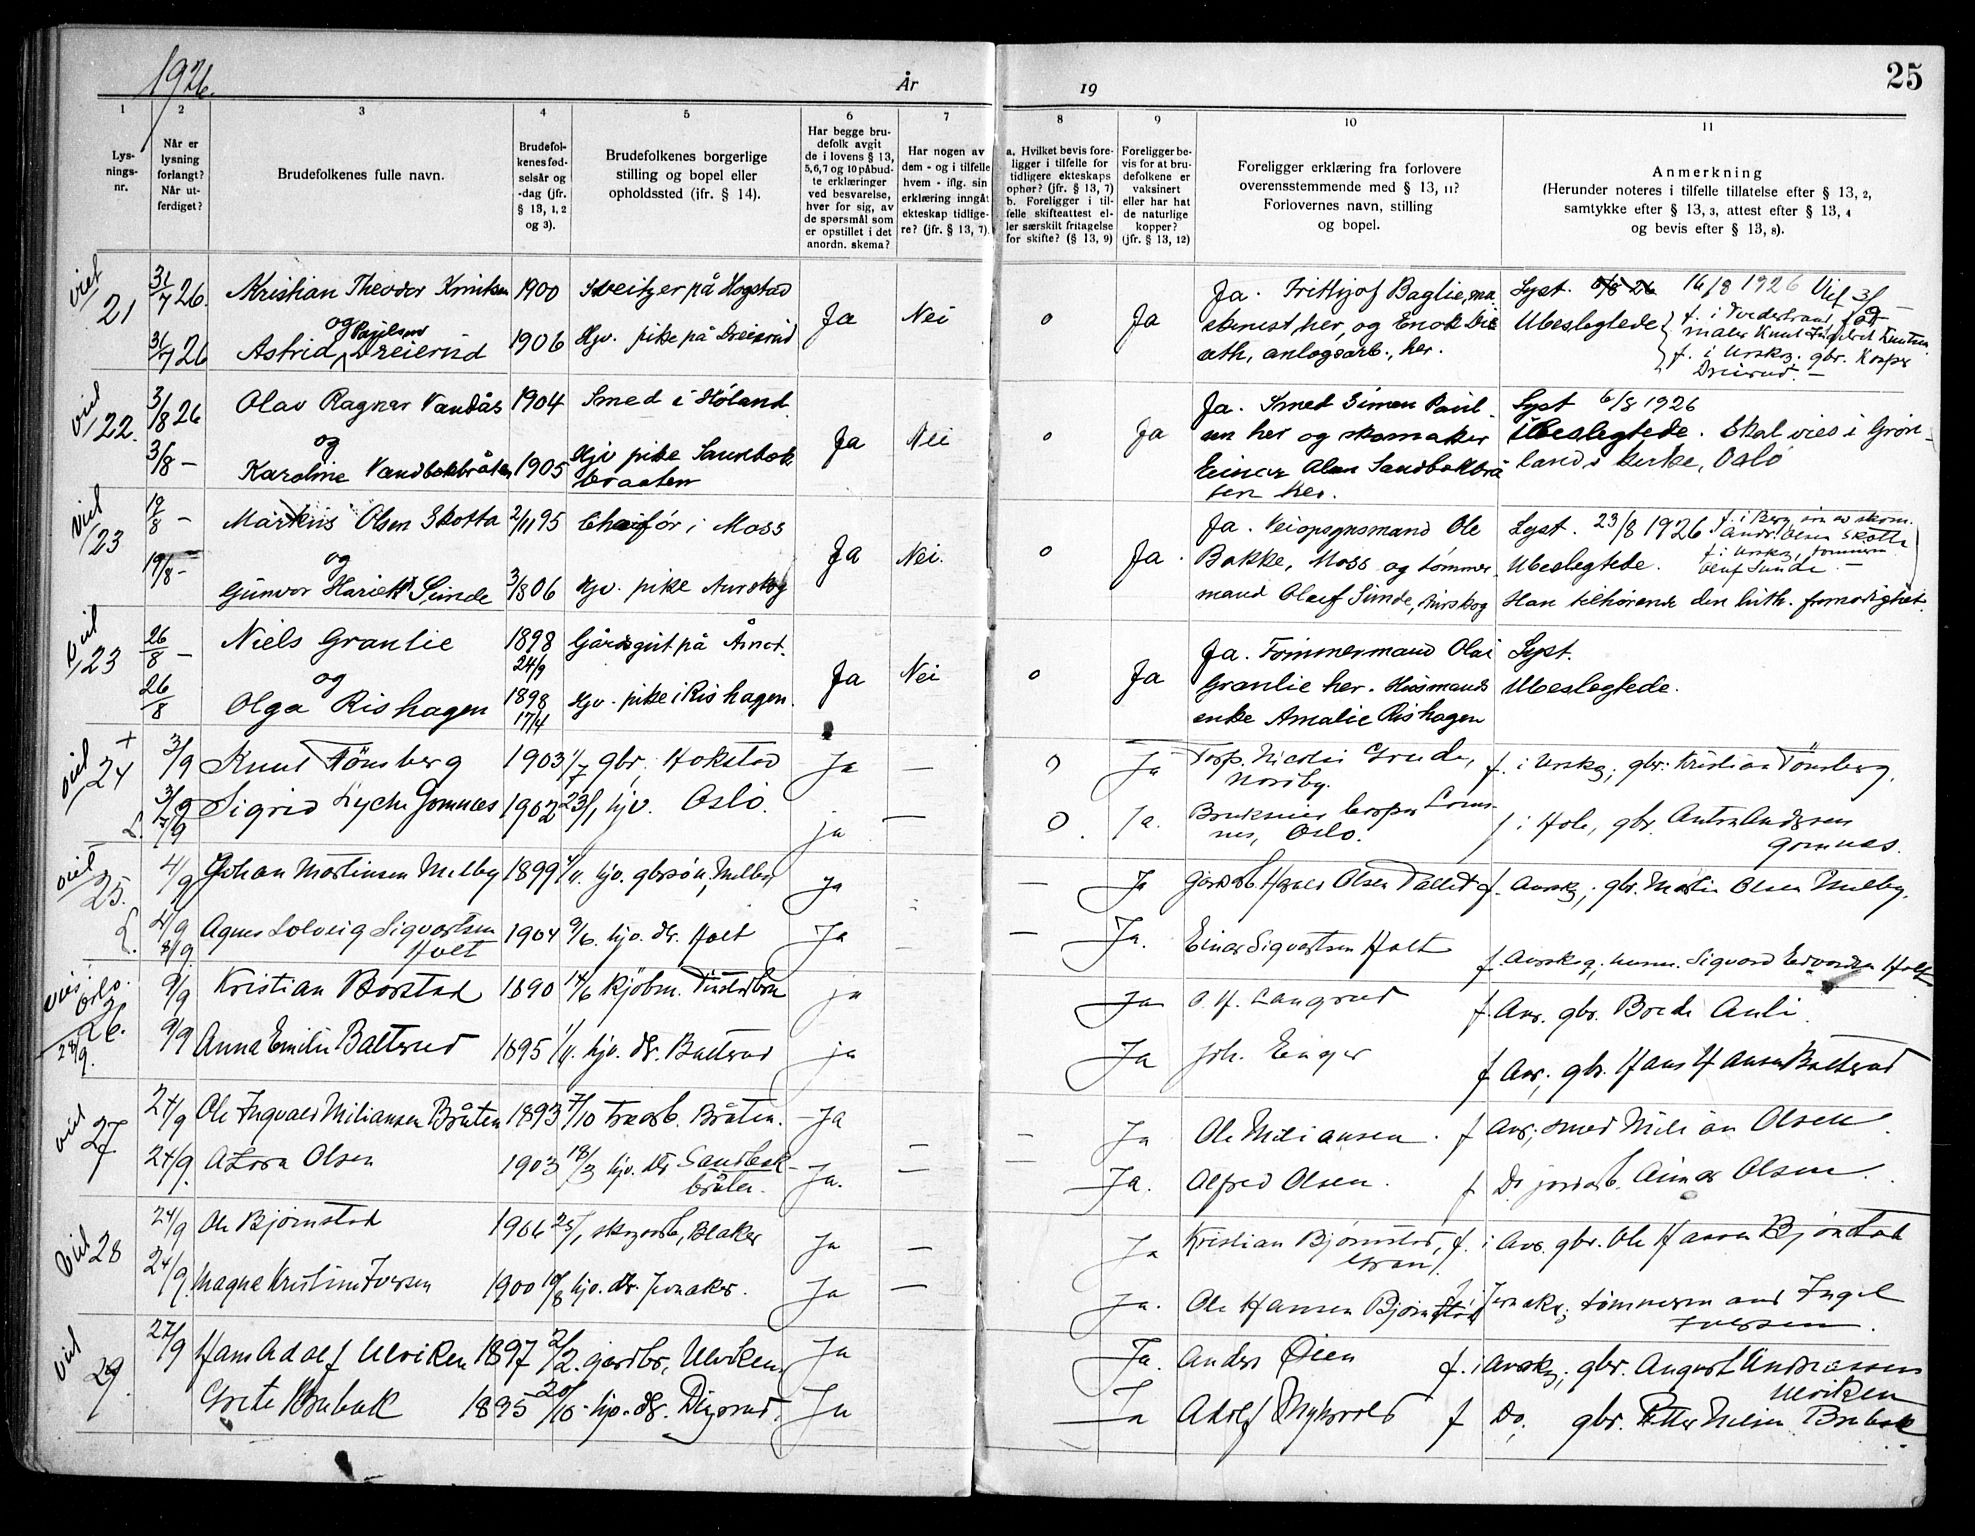 1926.
År
19
25
1
2
3
4
5
6
7
8
9
10
11
Lys-
nings-
nr.
Når er
lysning
forlangt?
Når ut-
ferdiget?
Brudefolkenes fulle navn.
Brudefol-
kenes fød-
selsår og
-dag (jfr.
§ 13, 1, 2
og 3).
Brudefolkenes borgerlige
stilling og bopel eller
opholdssted (jfr. § 14).
Har begge bru-
defolk avgit
de i lovens § 13,
5,6,7 og 10 påbud-
te erklæringer
ved besvarelse,
hver for sig, av
de spørsmål som
er opstillet i det
anordn. skema?
Har nogen av
dem - og i tilfelle
hvem - iflg. sin
erklæring inngåt
ekteskap tidlige-
re? (jfr. § 13, 7).
a. Hvilket bevis fore-
ligger i tilfelle for
tidligere ekteskaps
ophør? (jfr. § 13, 7)
b. Foreligger i til-
felle skifteattest el-
ler særskilt fritagelse
for skifte? (§ 13, 9)
Foreligger be-
vis for at bru-
defolkene er
vaksinert
eller har hat
de naturlige
kopper?
(jfr. § 13, 12)
Foreligger erklæring fra forlovere
overensstemmende med § 13, 11?
Forlovernes navn, stilling
og bopel.
Anmerkning
(Herunder noteres i tilfelle tillatelse efter § 13, 2,
samtykke efter § 13, 3, attest efter § 13, 4
og bevis efter § 13, 8).
viet
21
31/7 26.
Kristian Theodor Knutsen
1900
Sveitzer på Hogstad
Ja
Nei
o
Ja
Ja. Frithjof Baglie, ma-
skinist, her, og Enok
anlegsarb., her.
Lyst. 16/8 1926 Viet
Ubeslegtede
f. i Tvedestrand
maler Knut Knutsen
f. i Urskog. gbr. Kasper
Dreierud. -
31/7 26
og
Paulsen
Astrid Dreierud
1906
Hjv. pike på Dreierud
viet
22.
3/8 26
Olav Ragnar Vandås
1904
Smed i Høland.
Ja
Nei
o
Ja
Ja. Smed Simen Paul-
sen her og skomaker
Einar Olsen Sandbekbrå-
ten her.
Lyst 6/8 1926
Ubeslegtede. Skal vies i Grøn-
lands kirke, Oslo
3/8 -
og
Karoline Sandbekbråten
1905
Hjv pike Sandbek
braaten
viet
23
19/8 -
Markus Olsen Skotta
2/11 95
Chaufør i Moss
Ja
Nei.
o
Ja.
Ja. Veiopsynsmand Ole
Bakke, Moss og tømmer-
mand Olaf Sunde, Aurskog
Lyst. 23/8 1926
f. i Berg, søn av skom.
Andr. Olsen Skotta
Ubeslegtede.
f. i Urskog, tømmerm.
Oluf Sunde. -
Han tilhørende den luth. fremenighet.
19/8 -
og
Gunvor Hariett Sunde
3/8 06
Hjv. pike Aurskog
viet
23
26/8 -
Niels Granlie
1898
24/9
Gårdsgut på Årnes.
Ja
Nei
o
Ja
Ja. Tømmermand Olai
Granlie her. Husmands
enke Amalie Rishagen
Lyst.
Ubeslegtede.
26/8
og
Olga Rishagen
1898
17/4
Hjv. pike i Rishagen.
viet
24
+
3/9
Knut Tönsberg
1903 1/7
gbr, Hokstad
Ja
—
o
Ja
Torp. Nicolai Grude,
Nordby.
f. i Urskg; gbr. Kristian Tönsberg.
3/9
7/9
L.
Sigrid Lyche Gomnæs
1902 23/1
hjv. Oslo.
ja
—
o.
Ja.
Brukseier Casper Lom-
nes, Oslo.
f i Hole, gbr. Anton Andersen
Gomnæs.
viet
25.
4/9
Johan Martinsen Melby
1899
hjv. gbrsøn, Melby
ja
—
Ja
gårdsb. Harald Olsen
f. Aurskg; gbr. Martin Olsen Melby.
L.
4/9
8/9.
Agnes Solveig Sigvartsen
Holt
1904 9/6.
hjv. dr. Holt
Ja
—
Ja.
Einar Sigvartsen Holt
f. Aurskog; Sigvard Edvardsen Holt
viet
Oslo.
26.
28/9.
9/9
Kristian Borstad
1890 14/6
kjøbm.
ja
Ja
O. H. Langrud
f. Aur. gbr. Brede Auli.
9/9
Anna Emilie Batterud
1895
hjv. dr. Batterud
ja
Ja
Joh. Einger
f Aur; gbr. Hans Hansen Batterud
viet
27
24/9
Ole Ingvald Miliansen Bråten
1893 7/10
Bråten.
Ja
—
Ja
Ole Miliansen.
f Aur; smed Milian Olsen.
24/9.
Azora Olsen
1903 18/3
hjv. dr Sandbek-
bråten.
Ja.
—
—
Ja.
Alfred Olsen.
f Do jordarb. Einar Olsen.
viet
28
24/9
Ole Bjørnstad
1906 25/1
skogarb, Blaker
Ja
—
Ja
Kristian Bjørnstad,
Gran.
f. i Aur. gbr. Ole Hansen Bjønstad
24/9.
Magna Kristine Iversen
1900 10/8
hjv. dr. Jevnaker.
Ja
—
Ja.
Ole Hansen Bjørnstad
f. Jevnaker; tømmermand Ingel
Iversen.
viet
29
27/9
Hans Adolf Ulviken
1897 2/2.
gårdbr, Ulviken
Ja
Ja.
Anders Øien
f. i Aurskg; gbr. August Andreassen
Ulviken
Grete Brubak
1895 20/10
hjv. dr. Digerud,
Ja
Ja
Adolf Nykvold
f Do, gbr. Petter Nilsen Brubak